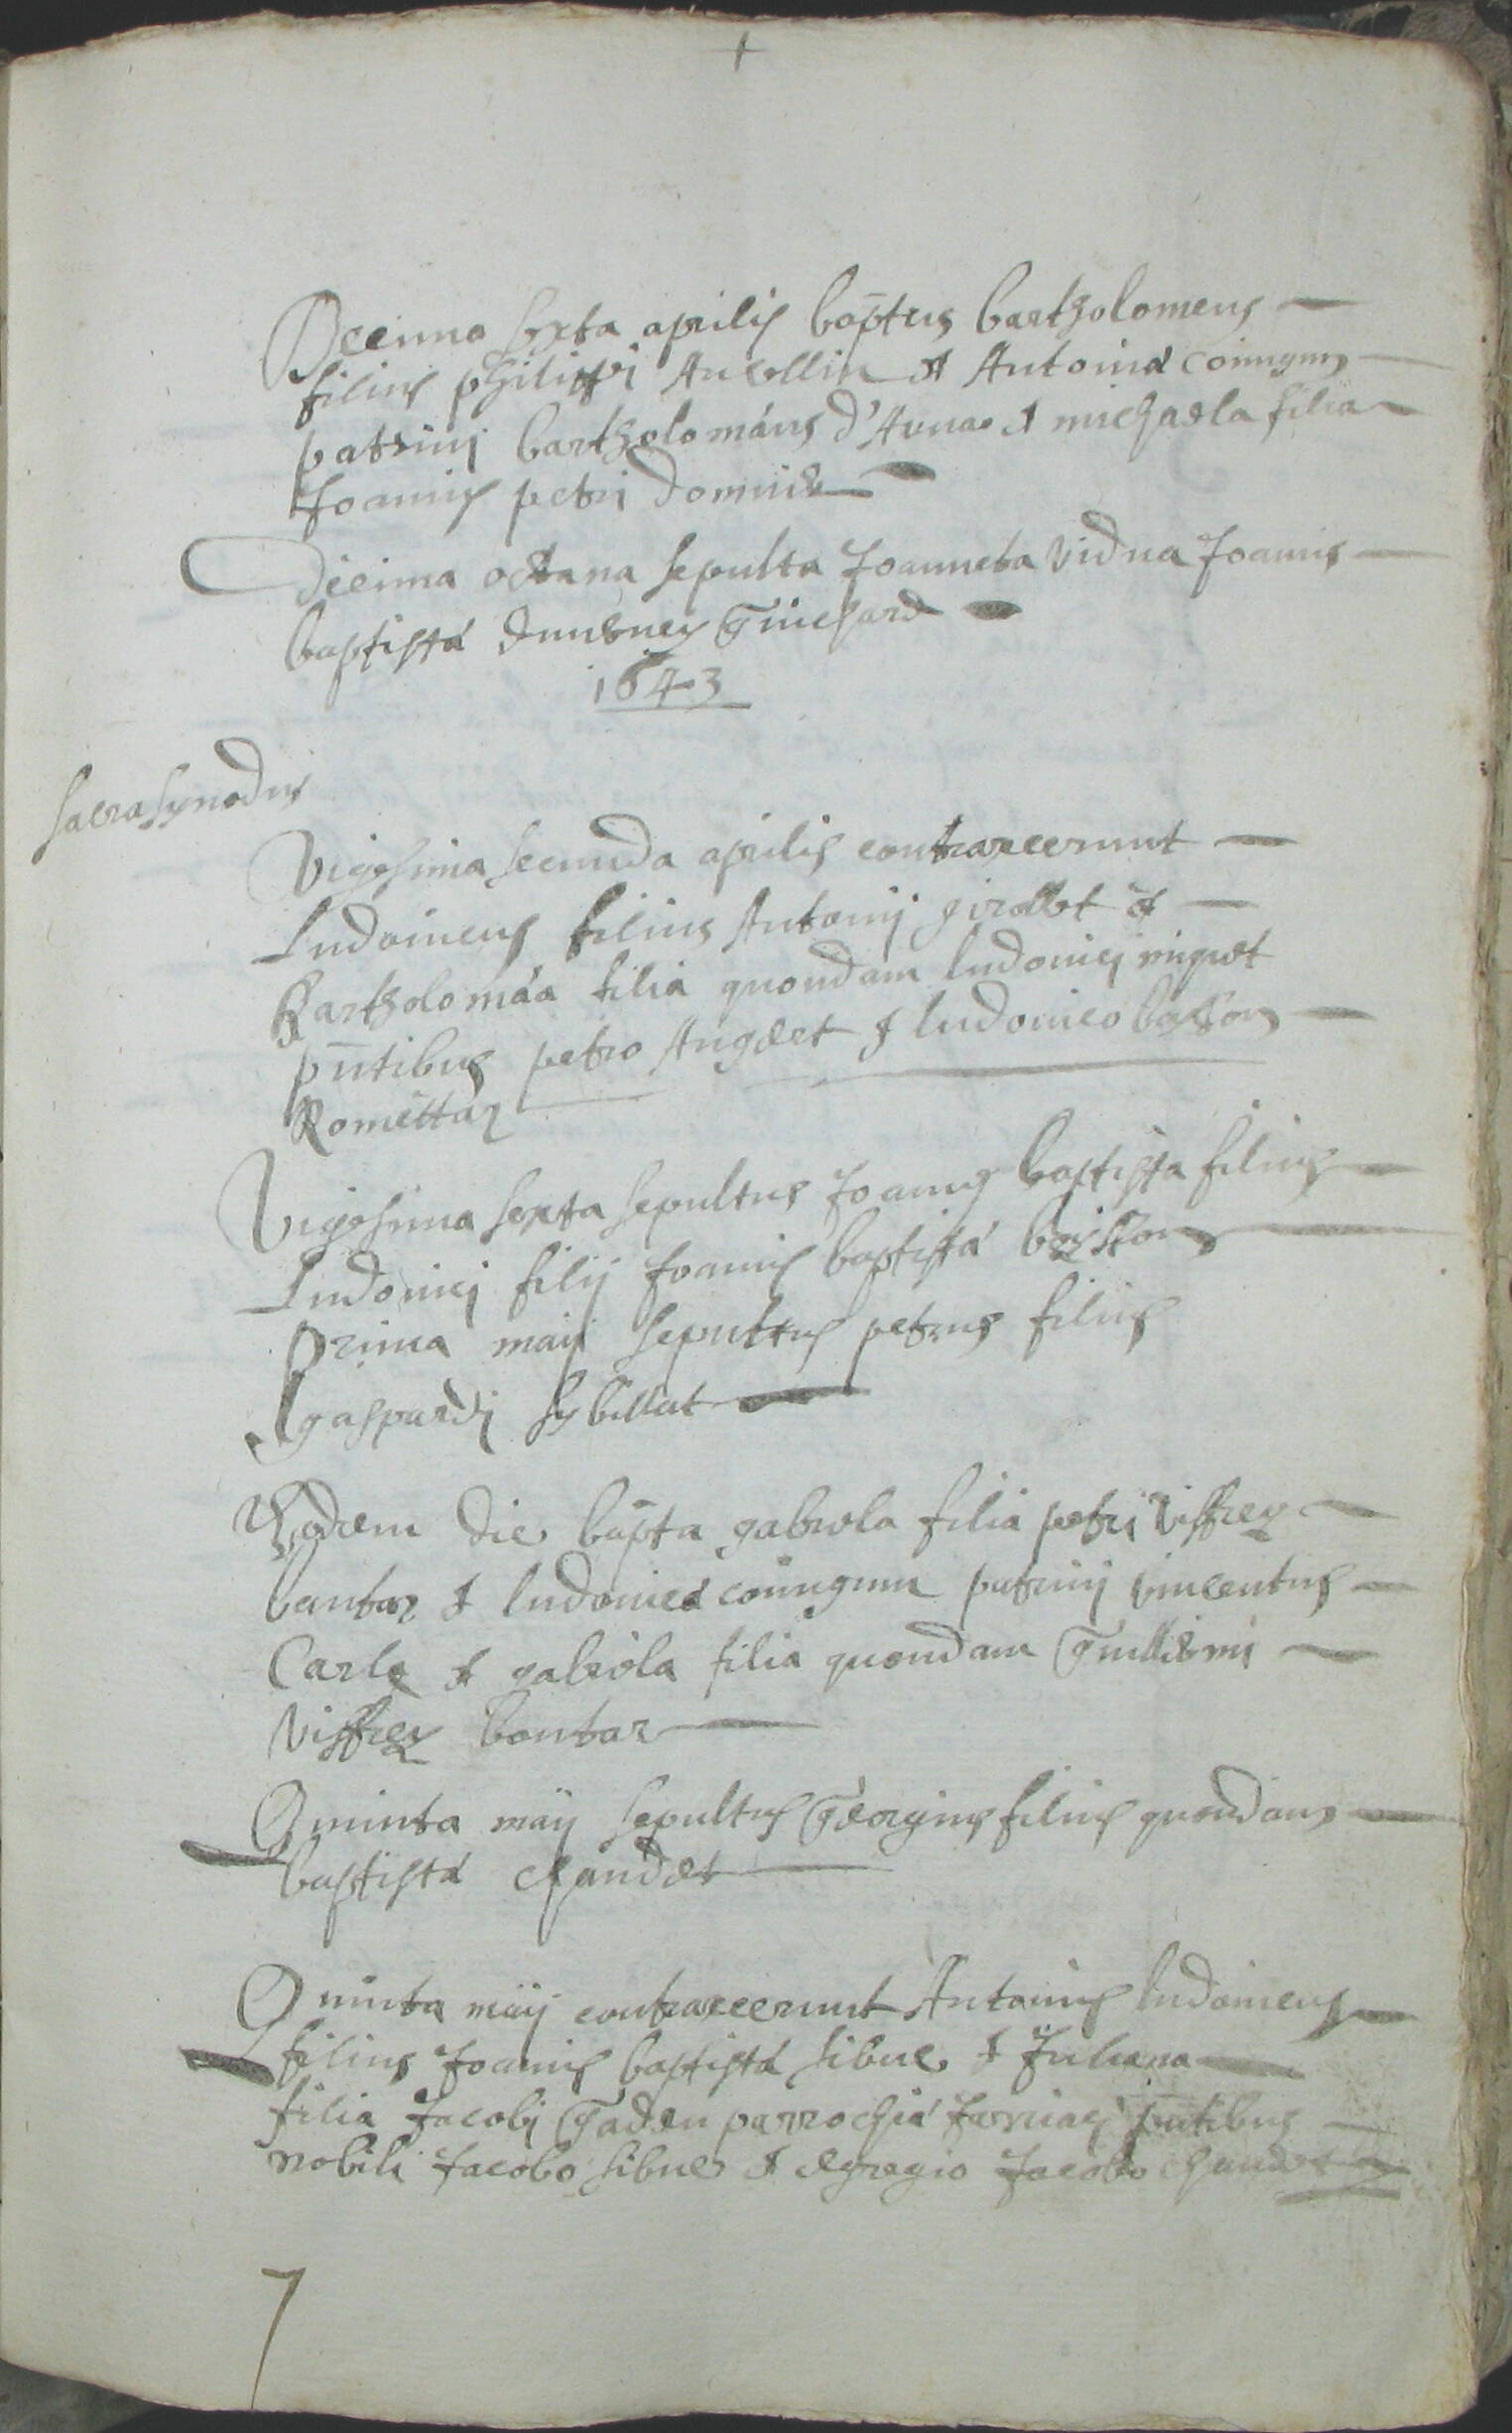 Decima sexta aprilis baptus bartholomeus
filius philippi Ancellin et Antoniæ coniugum
patrinj bartholomæus d'Auna et michaela filia
Joannis petri
Decima octaua sepulta Joanneta vidua Joannis
baptistæ Guichard
1643
sacra synodus
Vigesima secunda aprilis contraxerunt
Ludouicus filius Antonij girollet et
Bartholomæa filia quondam ludouicj miguet
pntibus petro Angelet et ludouico
Romettaz
Vigesima sexta sepultus Joannes baptista filius
Ludouicj filij Joannis baptistæ boisson
Prima maij sepultus petrus filius
gaspardj sybillat
Eadem die bapta gabriela filia petrj viffrey
bontaz et ludouicæ coniugum patrinj vincentius
Carle et gabriela filia quondam Guillermi
viffrey bontaz
Quinta maij sepultus Georgius filius quondam
baptistæ chaudet
Quinta maij contraxerunt Antonius ludouicus
filius Joannis baptistæ sibue et Juliana
filia Jacobj Gaden parrochiæ pntibus
nobili Jacobo sibue et egregio Jacobo chaudet
7